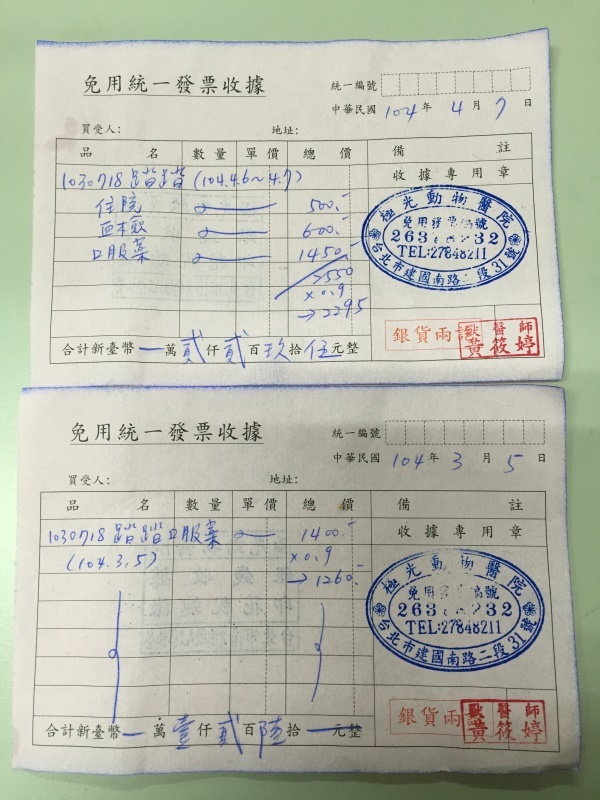 免用統一發票收據
統一編號
中華民國 104 年 4 月 7 日
買受人: 地址:
品 名 數量 單價 總 價 備 註
收據專用章
1030718 踏踏 (104.4.6~4.7)
住院 500.-
600.-
口服藥 1450.-
2550
×0.9
→2295
極光動物醫院
免用發票編號
TEL:27848211
台北市建國南路二段31號
銀貨兩訖
獸醫師
黃筱婷
合計新臺幣 萬 貳 仟 貳 百 玖 拾 伍 元整
免用統一發票收據
統一編號
中華民國 104 年 3 月 5 日
買受人: 地址:
品 名 數量 單價 總 價 備 註
收據專用章
1030718 踏踏 口服藥 1400.-
(104.3.5) ×0.9
→1260.-
極光動物醫院
TEL:27848211
台北市建國南路二段31號
銀貨兩
獸醫師
黃筱婷
合計新臺幣 萬 壹 仟 貳 百 陸 拾 元整